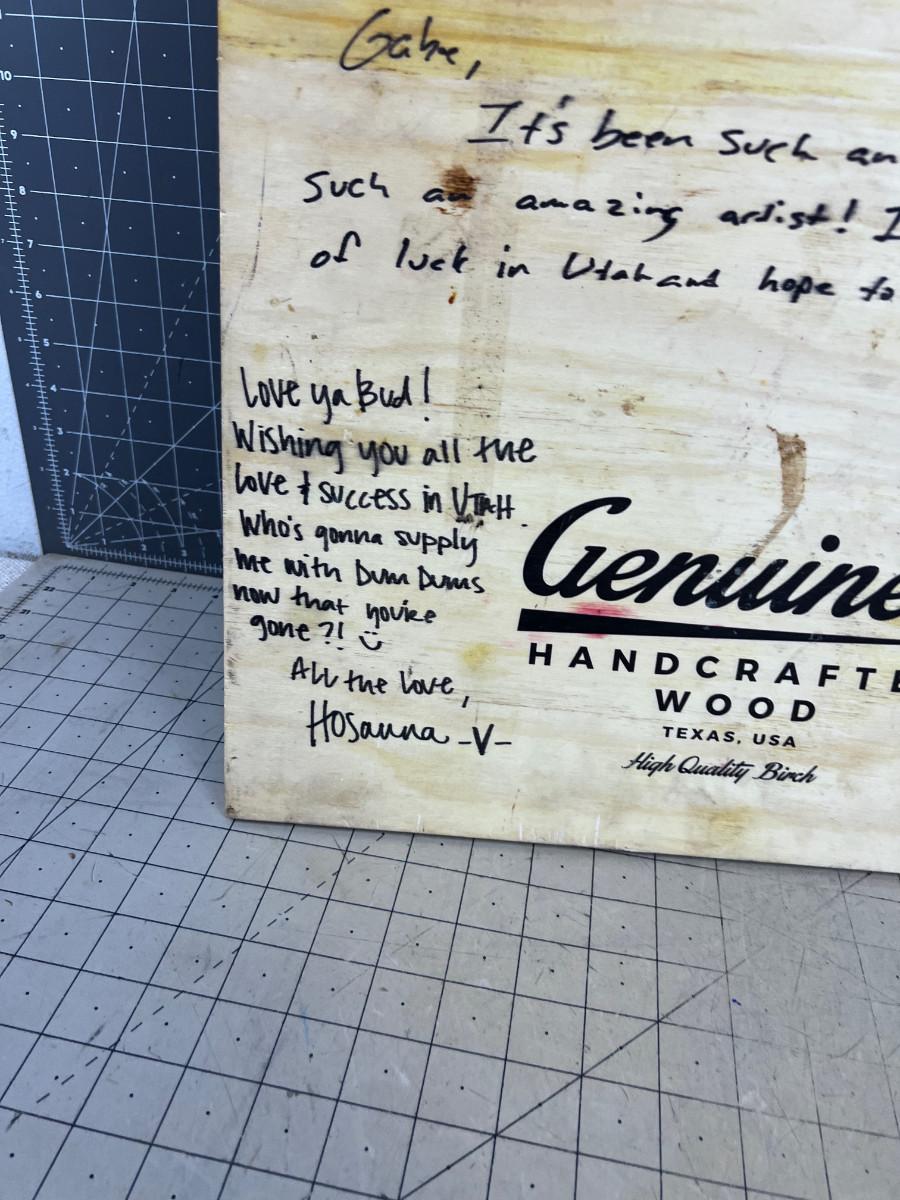 Gabe,
It's been such an
such an amazing artist! I
of luck in Utah and hope to
Love ya Bud!
Wishing you all the
love & success in UTAH.
Who's gonna supply
me with Dum Dums
now that you're
gone?! :)
All the love,
Hosanna -V-
Genuine
HANDCRAFTE
WOOD
TEXAS, USA
High Quality Birch
10
9
8
7
6
5
4
3
2
1
2
3